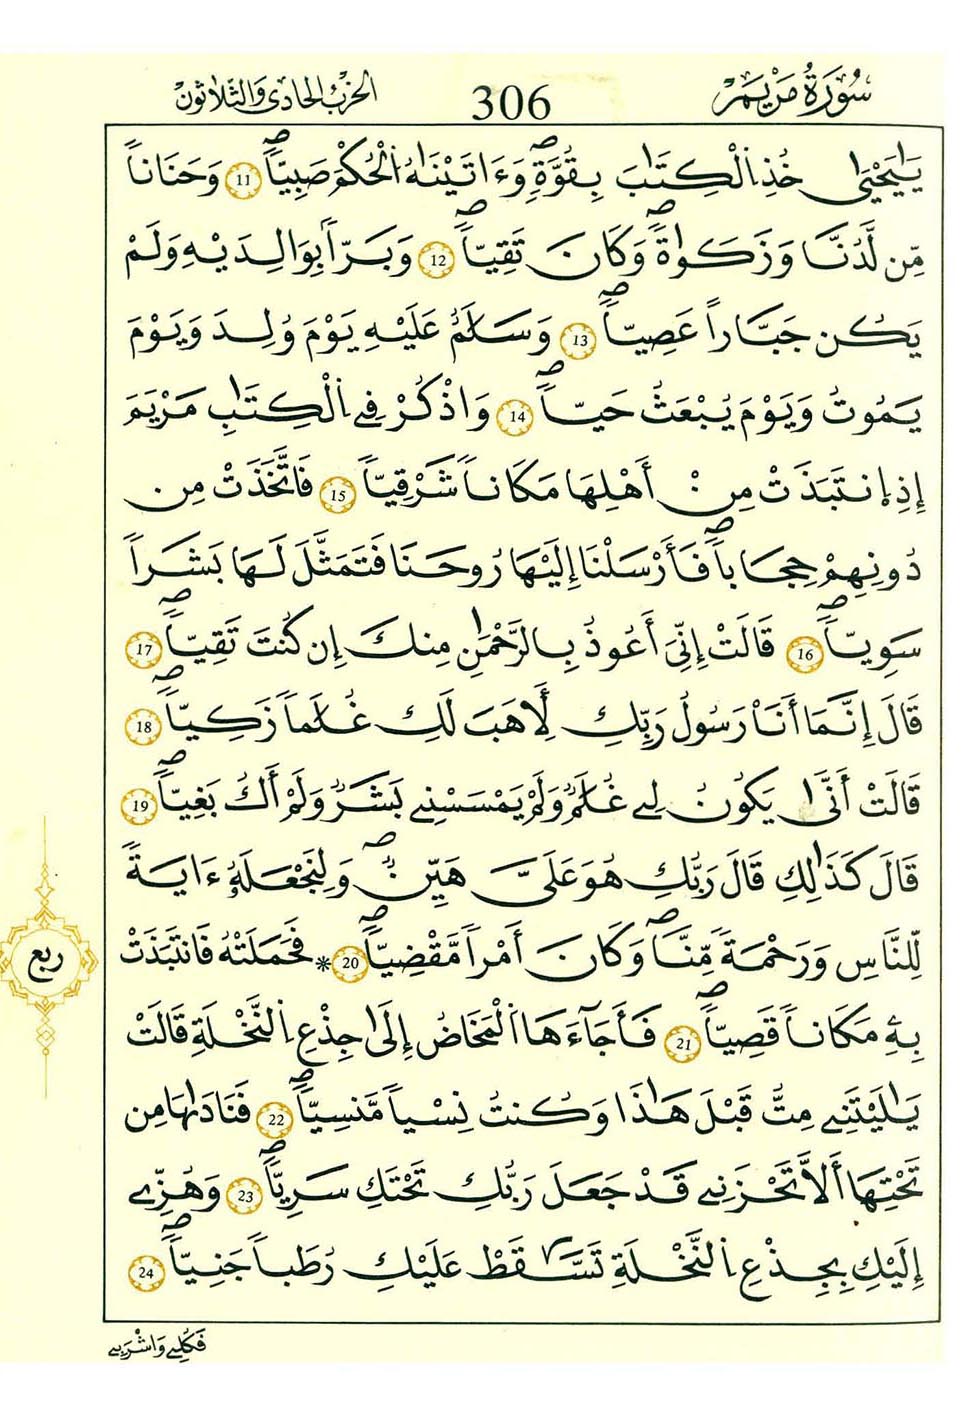 سُورَةُ مَرْيَمَ 306 الحزب الحادي والثلاثون
يَٰيَحْيَىٰ خُذِ اِ۬لْكِتَٰبَ بِقُوَّةٖۖ وَءَاتَيْنَٰهُ اُ۬لْحُكْمَ صَبِيّاٗۖ 11 وَحَنَاناٗ
مِّن لَّدُنَّا وَزَكَوٰةٗۖ وَكَانَ تَقِيّاٗۖ 12 وَبَرّاَۢ بِوَٰلِدَيْهِ وَلَمْ
يَكُن جَبَّاراً عَصِيّاٗۖ 13 وَسَلَٰمٌ عَلَيْهِ يَوْمَ وُلِدَ وَيَوْمَ
يَمُوتُ وَيَوْمَ يُبْعَثُ حَيّاٗۖ 14 وَاذْكُرْ فِے اِ۬لْكِتَٰبِ مَرْيَمَ
إِذِ اِ۪نتَبَذَتْ مِنْ أَهْلِهَا مَكَاناٗ شَرْقِيّاٗ 15 فَاتَّخَذَتْ مِن
دُونِهِمْ حِجَاباٗۖ فَأَرْسَلْنَا إِلَيْهَا رُوحَنَا فَتَمَثَّلَ لَهَا بَشَراٗ
سَوِيّاٗۖ 16 قَالَتْ إِنِّيَ أَعُوذُ بِالرَّحْمَٰنِ مِنكَ إِن كُنتَ تَقِيّاٗۖ 17
قَالَ إِنَّمَا أَنَا رَسُولُ رَبِّكِ لِأَهَبَ لَكِ غُلَٰماٗ زَكِيّاٗۖ 18
قَالَتْ أَنَّىٰ يَكُونُ لِے غُلَٰمٌ وَلَمْ يَمْسَسْنِے بَشَرٌ وَلَمْ أَكُ بَغِيّاٗۖ 19
قَالَ كَذَٰلِكِ قَالَ رَبُّكِ هُوَ عَلَيَّ هَيِّنٌۖ وَلِنَجْعَلَهُۥ ءَايَةٗ
لِّلنَّاسِ وَرَحْمَةٗ مِّنَّاۖ وَكَانَ أَمْراٗ مَّقْضِيّاٗۖ 20 * فَحَمَلَتْهُ فَانتَبَذَتْ
بِهِۦ مَكَاناٗ قَصِيّاٗۖ 21 فَأَجَآءَهَا اَ۬لْمَخَاضُ إِلَىٰ جِذْعِ اِ۬لنَّخْلَةِ قَالَتْ
يَٰلَيْتَنِے مِتُّ قَبْلَ هَٰذَا وَكُنتُ نِسْياٗ مَّنسِيّاٗۖ 22 فَنَادَىٰهَا مِن
تَحْتِهَا أَلَّا تَحْزَنِے قَدْ جَعَلَ رَبُّكِ تَحْتَكِ سَرِيّاٗۖ 23 وَهُزِّے
إِلَيْكِ بِجِذْعِ اِ۬لنَّخْلَةِ تَسَّٰقَطْ عَلَيْكِ رُطَباٗ جَنِيّاٗۖ 24
ربع
فَكُلِے وَاشْرَبِے